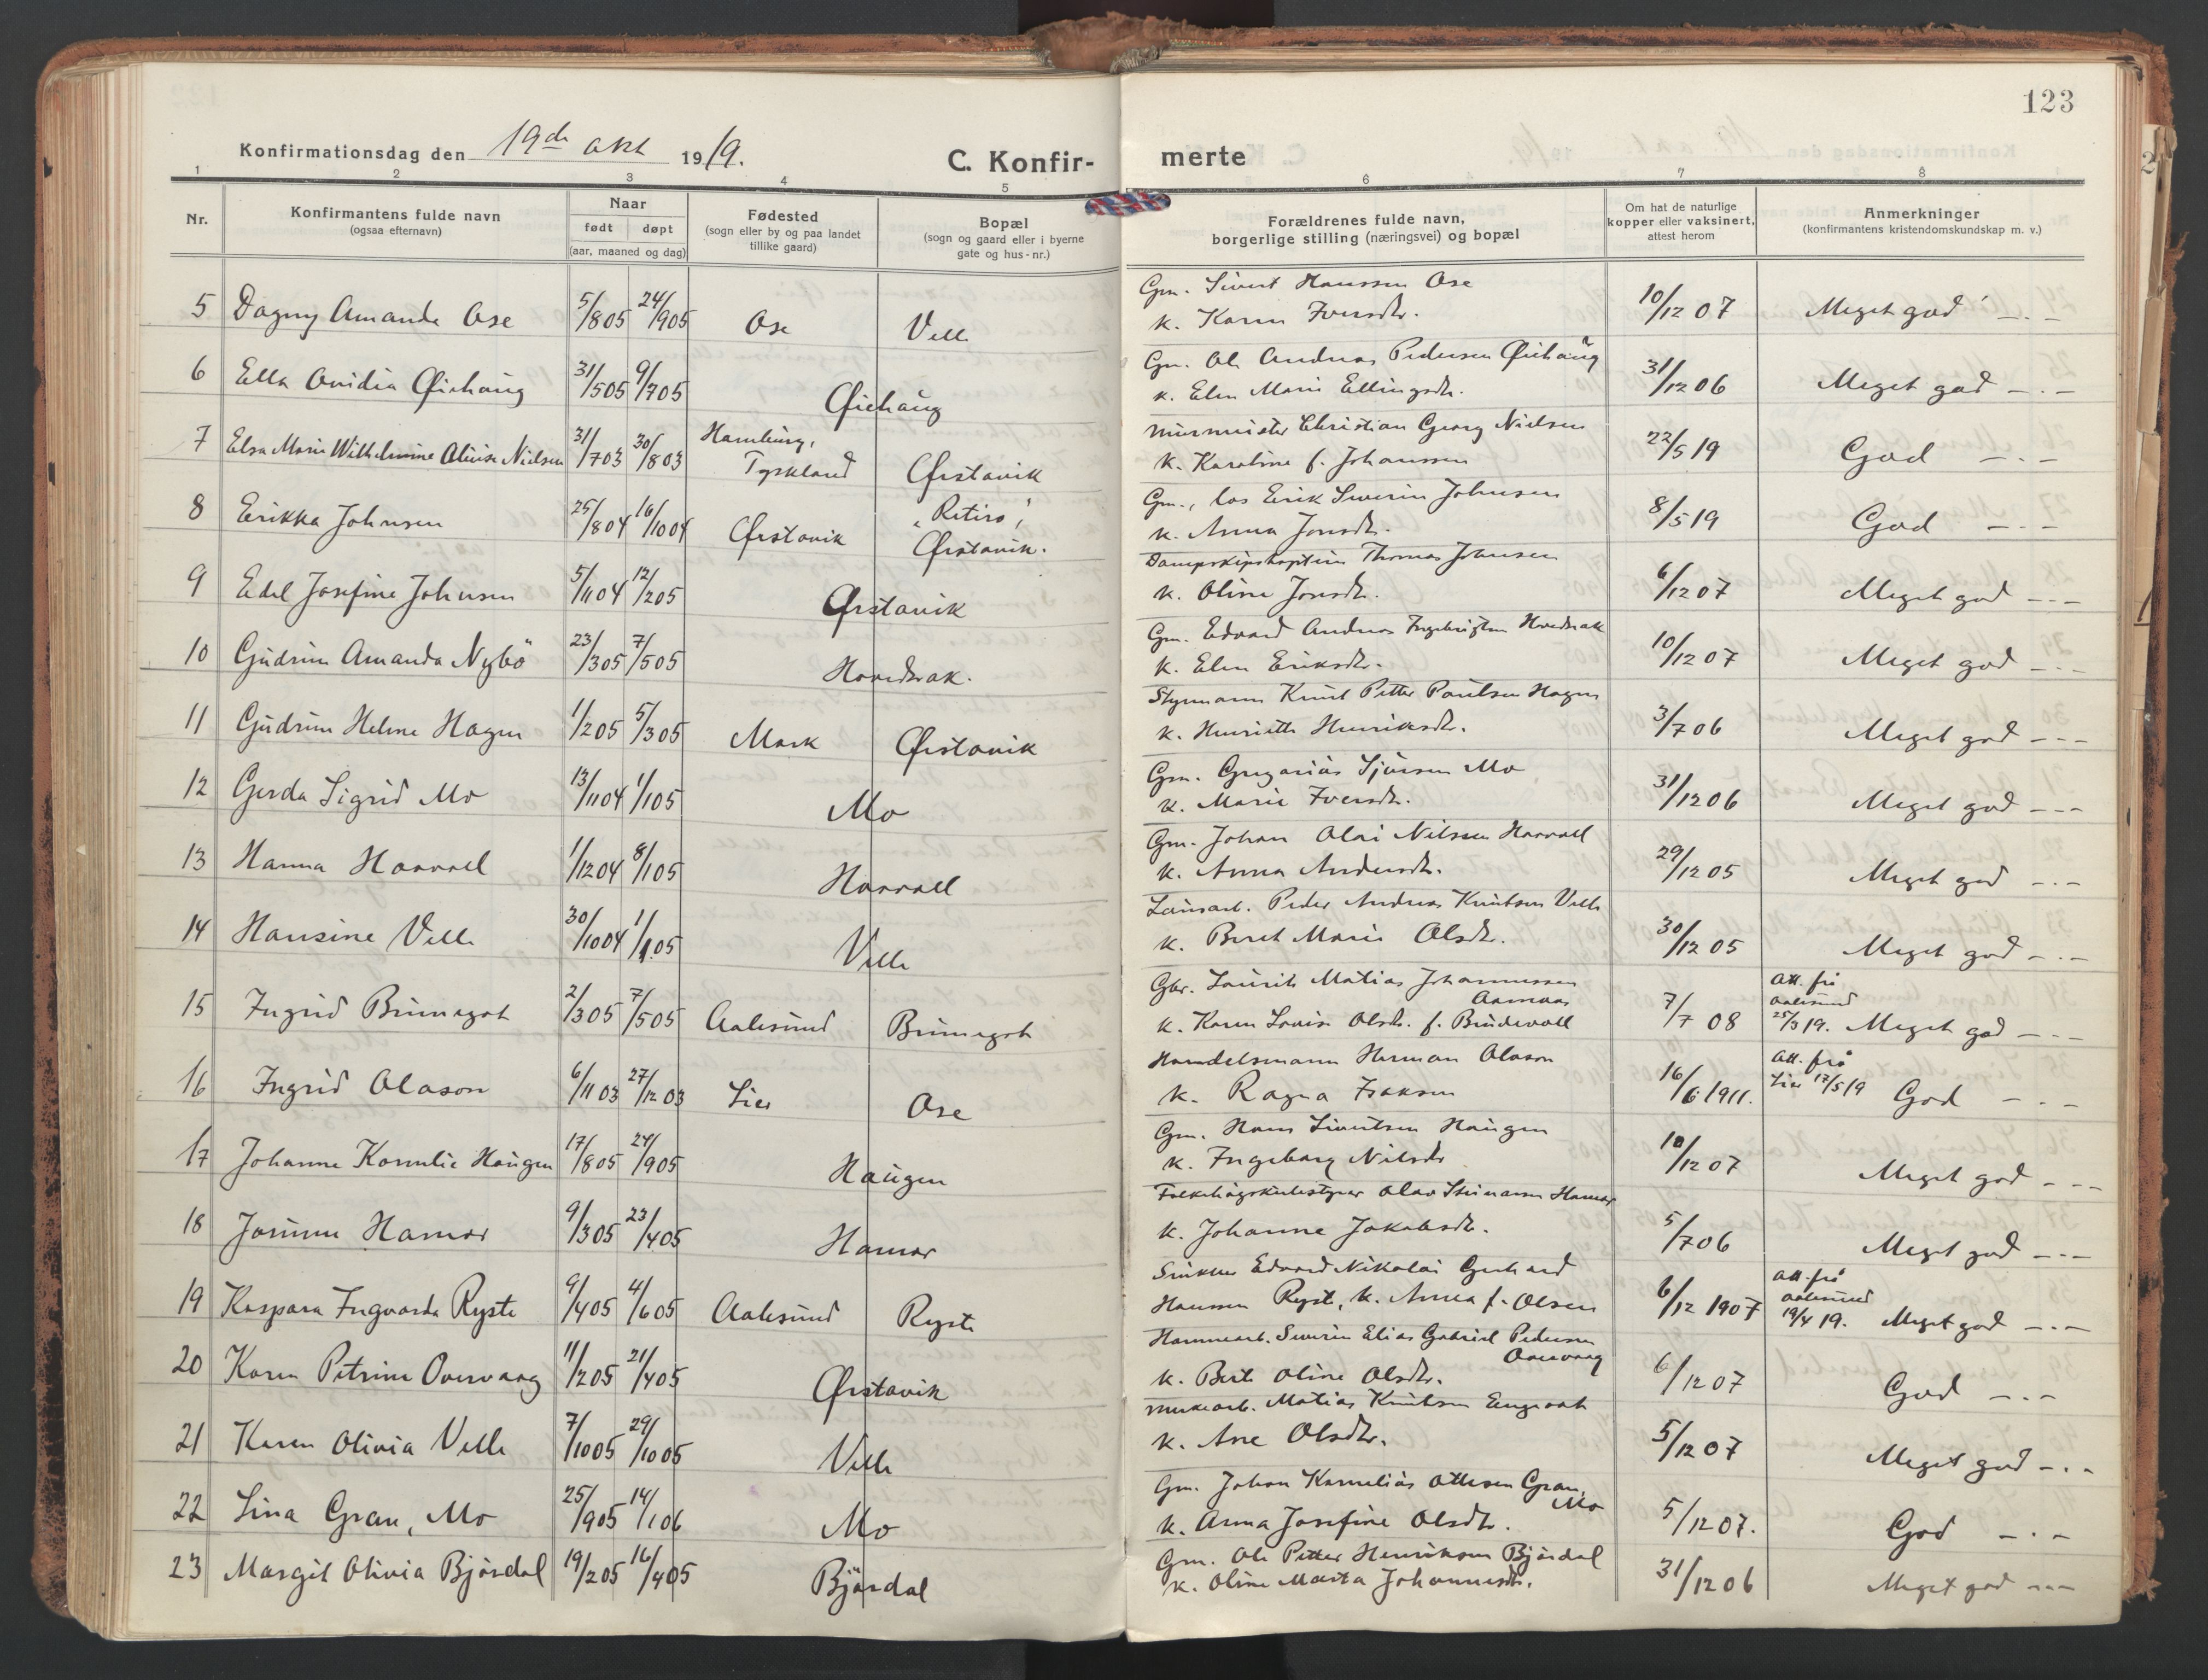 123
Konfirmationsdag den 19de okt 1919.
C. Konfir-
merte
1 2 3 4 5 6 7 8
Nr.
Konfirmantens fulde navn
(ogsaa efternavn)
Naar
født døpt
(aar, maaned og dag)
Fødested
(sogn eller by og paa landet
tillike gaard)
Bopæl
(sogn og gaard eller i byerne
gate og hus-nr.)
Forældrenes fulde navn,
borgerlige stilling (næringsvei) og bopæl
Om hat de naturlige
kopper eller vaksinert,
attest herom
Anmerkninger
(konfirmantens kristendomskundskap m. v.)
Gm. Sivert Hanssen Ose
5 Dagny Amanda Ose 5/8 05 24/9 05 Ose Velle k. Karen Iversdtr. 10/12 07 Meget god — . —
Gm. Ole Andreas Pedersen Øiehaug
6 Ella Ovidia Øiehaug 31/5 05 9/7 05 Øiehaug k. Elen Marie Ellingsdtr. 31/12 06 Meget god — . —
Hamburg,
Murmeister Christian Georg Nielsen
7 Elsa Marie Wilhelmine Aluise Nielsen 31/7 03 30/8 03 Tyskland Ørstavik k. Karoline f. Johanssen 22/5 19 God — . —
"Retiro",
Gm., los Erik Severin Johnsen
8 Erikka Johnsen 25/8 04 16/10 04 Ørstavik Ørstavik. k. Anna Jonsdtr. 8/5 19 God — . —
Dampskipskaptein Thomas Johnsen
9 Edel Josefine Johnsen 5/11 04 12/2 05 Ørstavik k. Oline Jonsdtr. 6/12 07 Meget god — . —
Gm. Edvard Andreas Ingebrigtsen Hovdenak
10 Gudrun Amanda Nybö 23/3 05 7/5 05 Hovdenak. k. Elen Eriksdtr. 10/12 07 Meget god — . —
Styrmann Knut Petter Paulsen Hagen
11 Gudrun Helene Hagen 1/2 05 5/3 05 Mork Ørstavik k. Henriette Henriksdtr. 3/7 06 Meget god — — —
Gm. Gregorius Sjursen Mo
12 Gerda Sigrid Mo 13/11 04 1/1 05 Mo k. Marie Iversdtr. 31/12 06 Meget god — — —
Gm. Johan Olai Nilssen Hovvoll
13 Hanna Hovvoll 1/12 04 8/1 05 Hovvoll k. Anna Andersdtr. 29/12 05 Meget god — . —
Lausarb. Peder Andreas Knutsen Velle
14 Hansine Velle 30/10 04 1/1 05 Velle k. Beret Marie Olsdtr. 30/12 05 Meget god — . —
Gbr. Laurits Matias Johannessen
Aamaas
Att. frå
Aalesund
15 Ingrid Brunegot 2/3 05 7/5 05 Aalesund Brunegot k. Karen Lovise Olsdtr. f. Brudevoll 7/7 08 25/3 19. Meget god — . —
Handelsmann Herman Olason
Att. frå
16 Ingrid Olason 6/11 03 27/12 03 Lier Ose k. Ragna Isaksen 16/6 1911. Lier 17/5 19 God — . —
Gm. Hans Sivertsen Haugen
17 Johanne Kornelie Haugen 17/8 05 24/9 05 Haugen k. Ingeborg Nilsdtr 10/12 07 Meget god — — —
Folkehøgskulestyrar Olav Hamar
18 Jorunn Hamar 9/3 05 23/4 05 Hamar k. Johanne Jakobsdtr. 5/7 06 Meget god — . —
Snikker Edvard Nikolai Gerhard
Att. frå
Aalesund
19 Kaspara Ingvarda Ryste 9/4 05 4/6 05 Aalesund Ryste Hanssen Ryste, k. Anna f. Olsen 6/12 1907 19/4 19. Meget god — . —
Hamnearb. Severin Elias Gabriel Pedersen
Overvaag
20 Karen Petrine Overvaag 11/2 05 21/4 05 Ørstavik k. Berte Oline Olsdtr. 6/12 07 God — . —
Murearb. Matias Knutsen Engeset
21 Karen Olivia Velle 7/10 05 29/10 05 Velle k. Ane Olsdtr. 5/12 07 Meget god — . .
Gm. Johan Kornelius Ottesen Gran,
Mo
22 Lina Gran, Mo 25/9 05 14/1 06 Mo k. Anna Josefine Olsdtr. 5/12 07. God — . —
Gm. Ole Petter Henriksen Bjørdal
23 Margit Olivia Bjørdal 19/2 05 16/4 05 Bjørdal k. Oline Marta Johannesdtr. 31/12 06 Meget god — — —